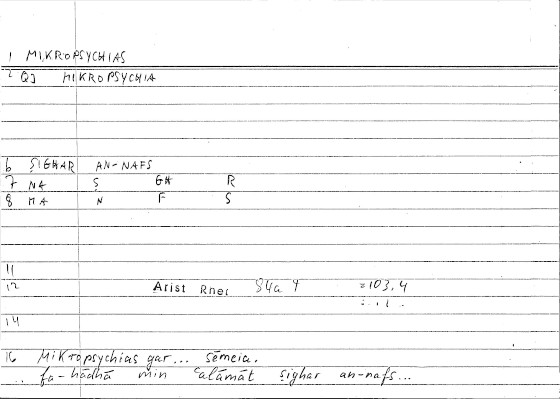 1 MIKROPSYCHIAS
2 QJ MIKROPSYCHIA
6 ṢIGHAR AN-NAFS
7 NA Ṣ GH R
8 MA N F S
11
12 Arist Rhet 84a 4 =103,4
14
16 Mikropsychias gar... sēmeia.
fa-hādhā min ʿalāmāt ṣighar an-nafs...